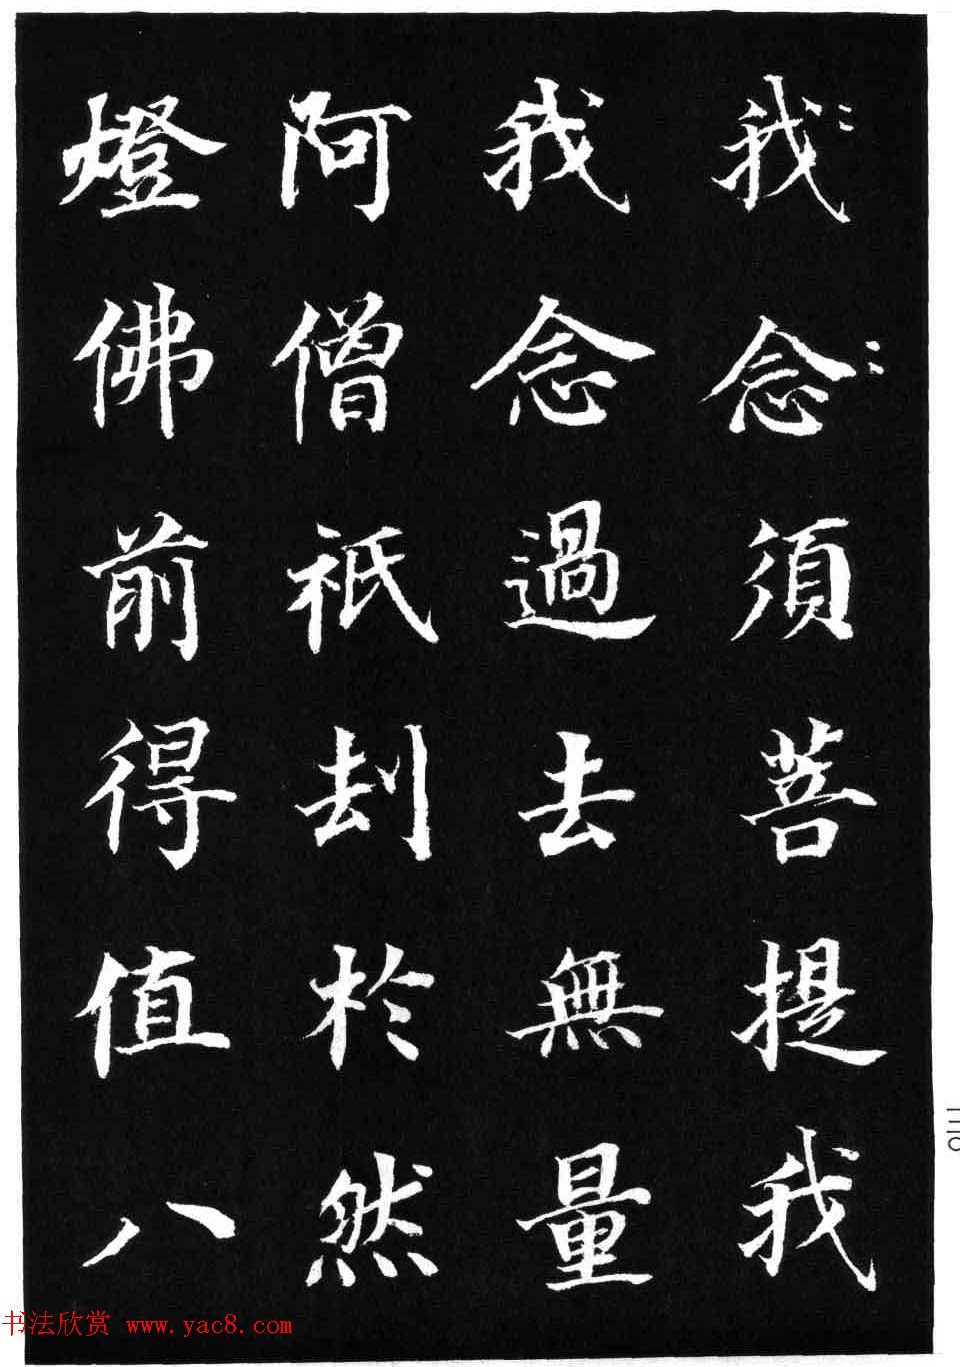 我念須菩提我
我念過去無量
阿僧祇刦於然
燈佛前得值八
一三〇
书法欣赏 www.yac8.com